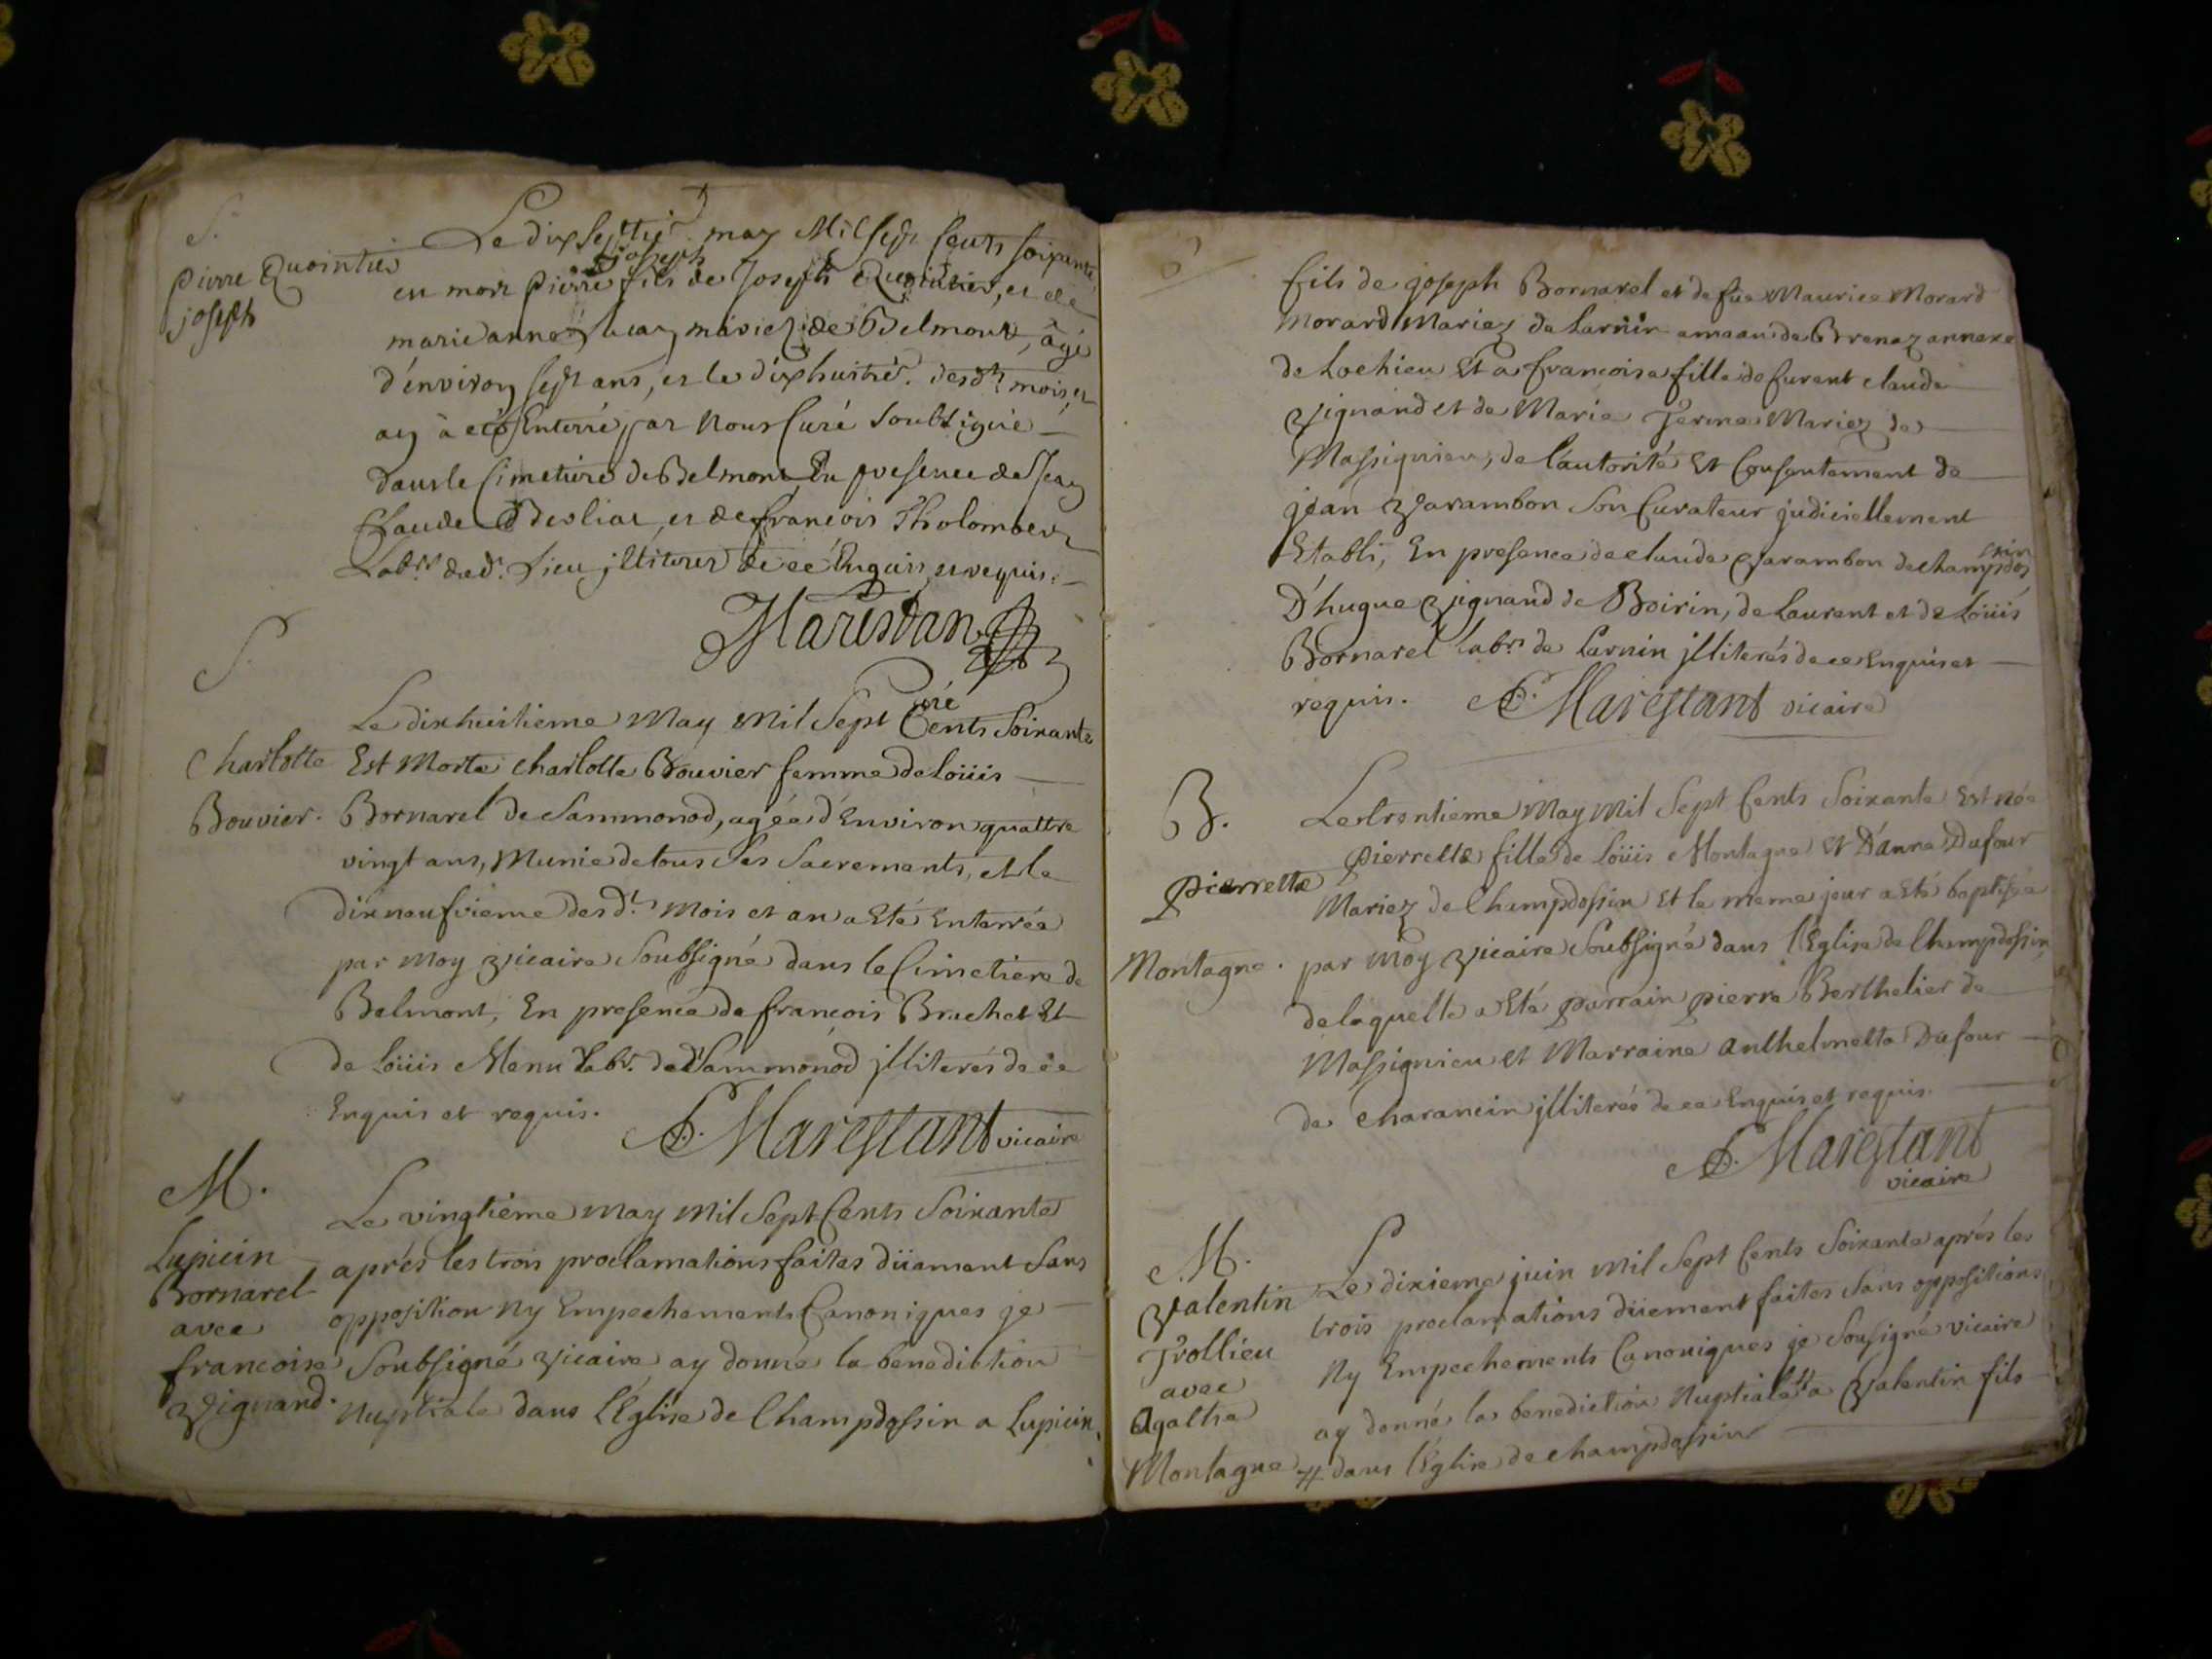 S.
Pierre Quointier
joseph
Le dix septie. may Mil sept cents soixante
joseph
en mort Pierre fils de Joseph Quointier, et de
marie anne mariez de Belmont, âgé
d'environ sept ans, et le dixhuitie. desdt. mois et
an à eté Enterré par Nous Curé soubsigné
dans le Cimetiere de Belmont En presence de Jean
Claude et de françois Tholomber
Labrs. dud. Lieu jlliterez de ce Enquis et requis.
Marestan
Curé
S.
Charlotte
Bouvier.
Le dixhuitieme May Mil Sept Cents Soixante
Est Morte charlotte Bouvier femme de Loüis
Bornarel de Sammonod, agée d'Environ quattre
vingt ans, Munie de tous les Sacrements, et le
dixneufvieme desdt. Mois et an a Eté Enterrée
par Moy Vicaire Soubsigné dans le Cimetiere de
Belmont, En presence de francois Brachet Et
de Loüis Menu labr. de Sammonod jlliterés de ce
Enquis et requis.
Marestant vicaire
M.
Lupicin
Bornarel
avec
francoise
Vignand.
Le vingtième May Mil Sept Cents Soixante
aprés les trois proclamations faites düement Sans
opposition Ny Empechements Canoniques je
Soubsigné Vicaire ay donné la benediction
Nuptiale dans L'Eglise de Champdossin a Lupicin
fils de joseph Bornarel et de füe Maurice Morard
Morard Mariez de Larnin de Brenaz annexe
de Lochieu Et a francoise fille de furent claude
Vignand et de Marie Ferme Mariez de
Massignieu, de l'autorité Et Consentement de
jean Varambon Son Curateur judiciellement
Etabli, En presence de claude Varambon de champdos
sin
D'hugue Vignand de Boirin, de Laurent et de Loüis
Bornarel labrs. de Larnin jlliterés de ce Enquis et
requis. Marestant vicaire
B.
Pierrette
Montagne.
Le trentieme May Mil Sept Cents Soixante Est née
pierrette fille de Loüis Montagne Et D'anne Dufour
Mariez de Champdossin Et le meme jour a Eté baptisée
par Moy Vicaire Soubsigné dans l'Eglise de Champdossin,
de laquelle a Eté parrain pierre Berthelier de
Massignieu et Marraine Anthelmette Dufour
de Charancin jlliterés de ce Enquis et requis.
Marestant
vicaire
M.
Valentin
Trollieu
avec
Agathe
Montagne
Le dixieme juin Mil Sept Cents Soixante aprés les
trois proclamations düement faites Sans oppositions
Ny Empechements Canoniques je Sousigné vicaire
ay donné la benediction Nuptiale # a Valentin fils
# dans l'Eglise de champdossin